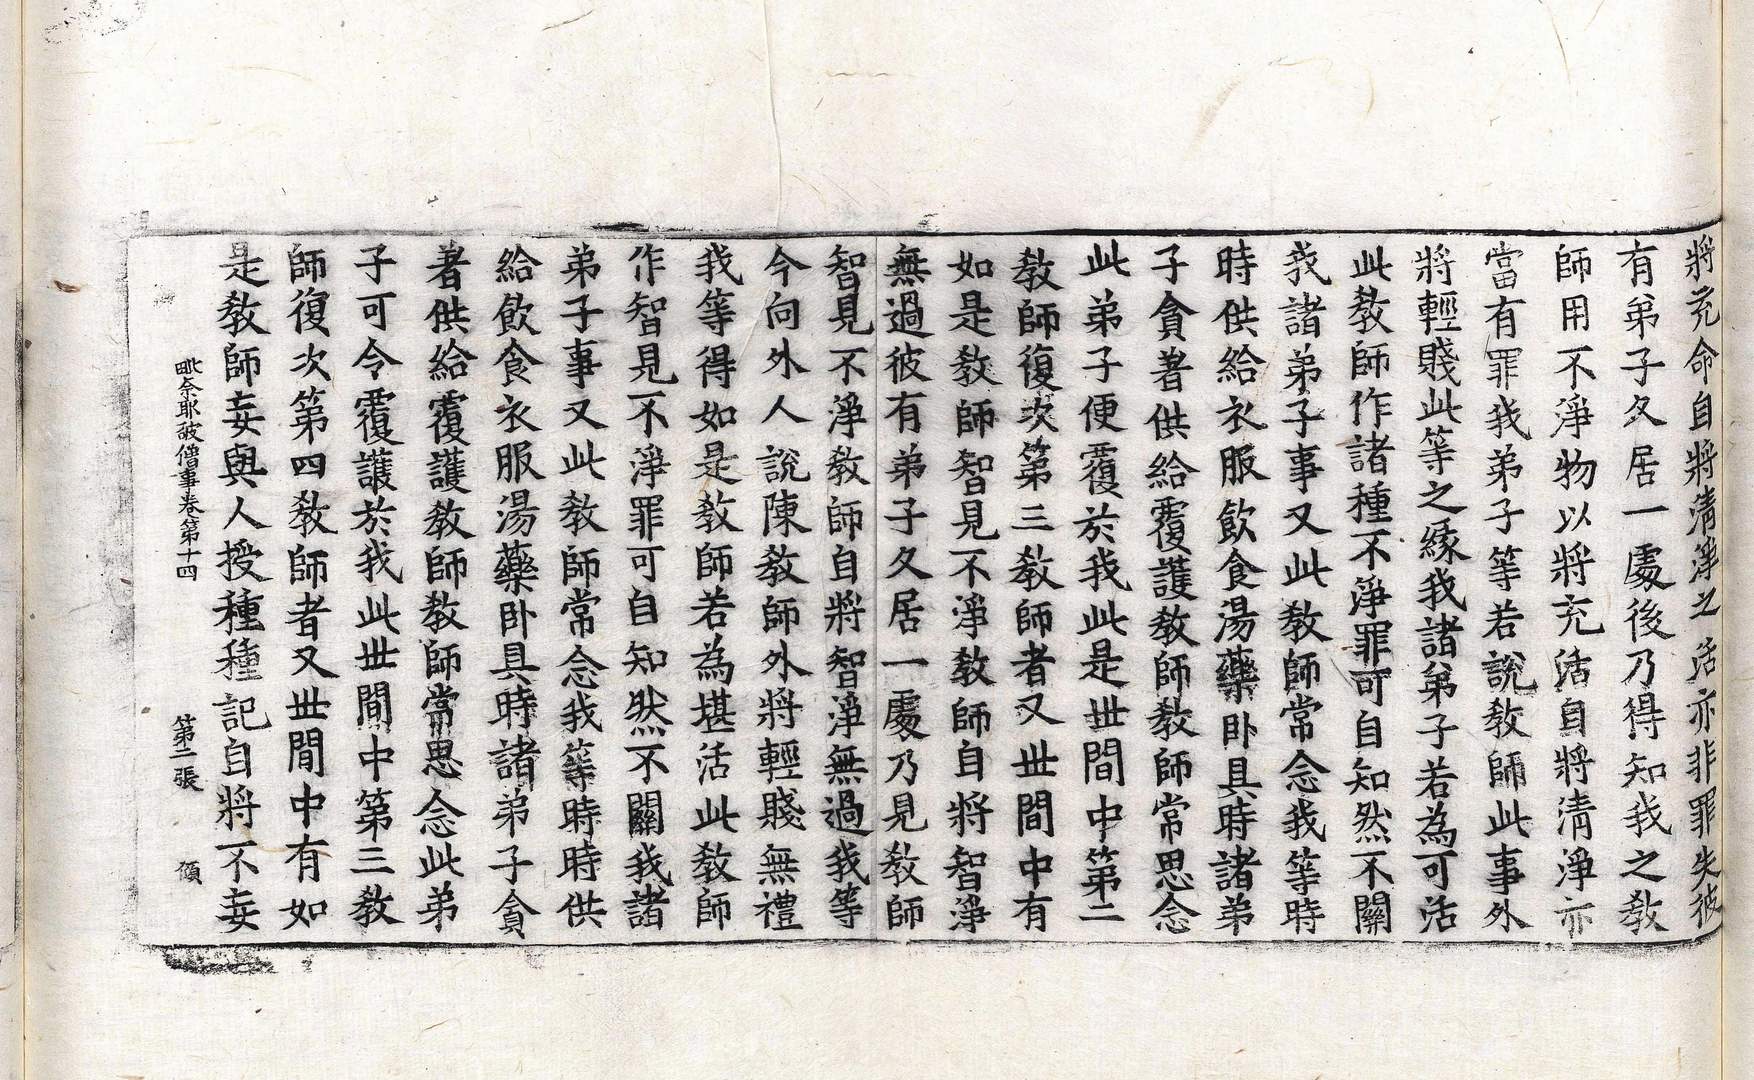 將充命自將清淨之活亦非罪失彼
有弟子久居一處後乃得知我之教
師用不淨物以將充活自將清淨亦
當有罪我弟子等若說教師此事外
將輕賤此等之緣我諸弟子若為可活
此教師作諸種不淨罪可自知然不關
我諸弟子事又此教師常念我等時
時供給衣服飲食湯藥卧具時諸弟
子貪著供給覆護教師教師常思念
此弟子便覆於我此是世間中第二
教師復次第三教師者又世間中有
如是教師智見不淨教師自將智淨
無過彼有弟子久居一處乃見教師
智見不淨教師自將智淨無過我等
今向外人說陳教師外將輕賤無禮
我等得如是教師若為堪活此教師
作智見不淨罪可自知然不關我諸
弟子事又此教師常念我等時時供
給飲食衣服湯藥卧具時諸弟子貪
著供給覆護教師教師常思念此弟
子可令覆護於我此世間中第三教
師復次第四教師者又世間中有如
是教師妄與人授種種記自將不妄
毗奈耶破僧事卷第十四 第二張 傾